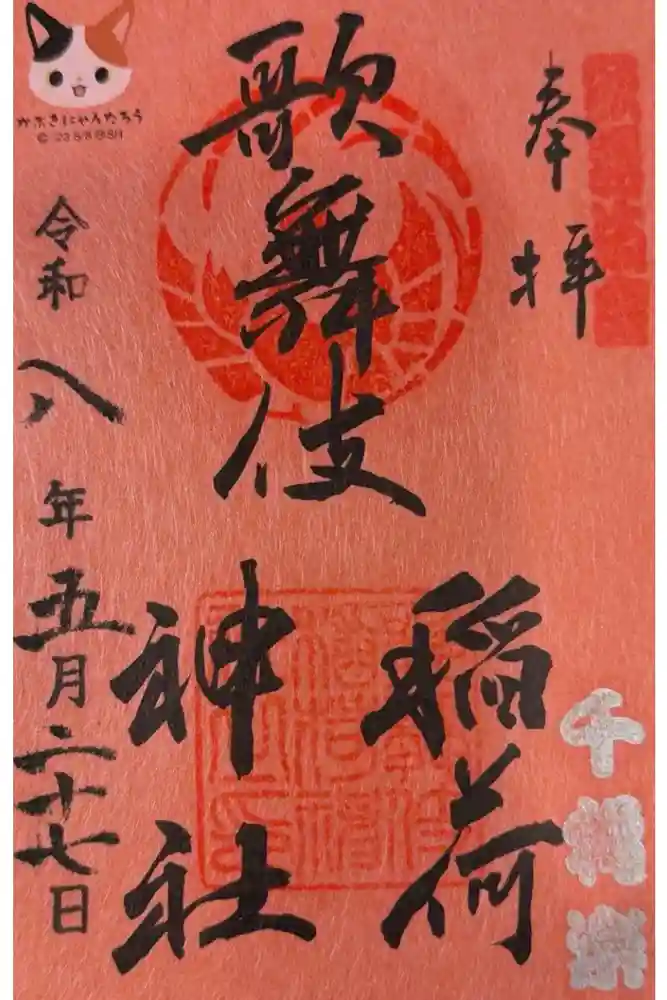 奉拝
歌舞伎
稲荷
神社
令和八年五月二十七日
かぶきにゃんたろう
千穐楽